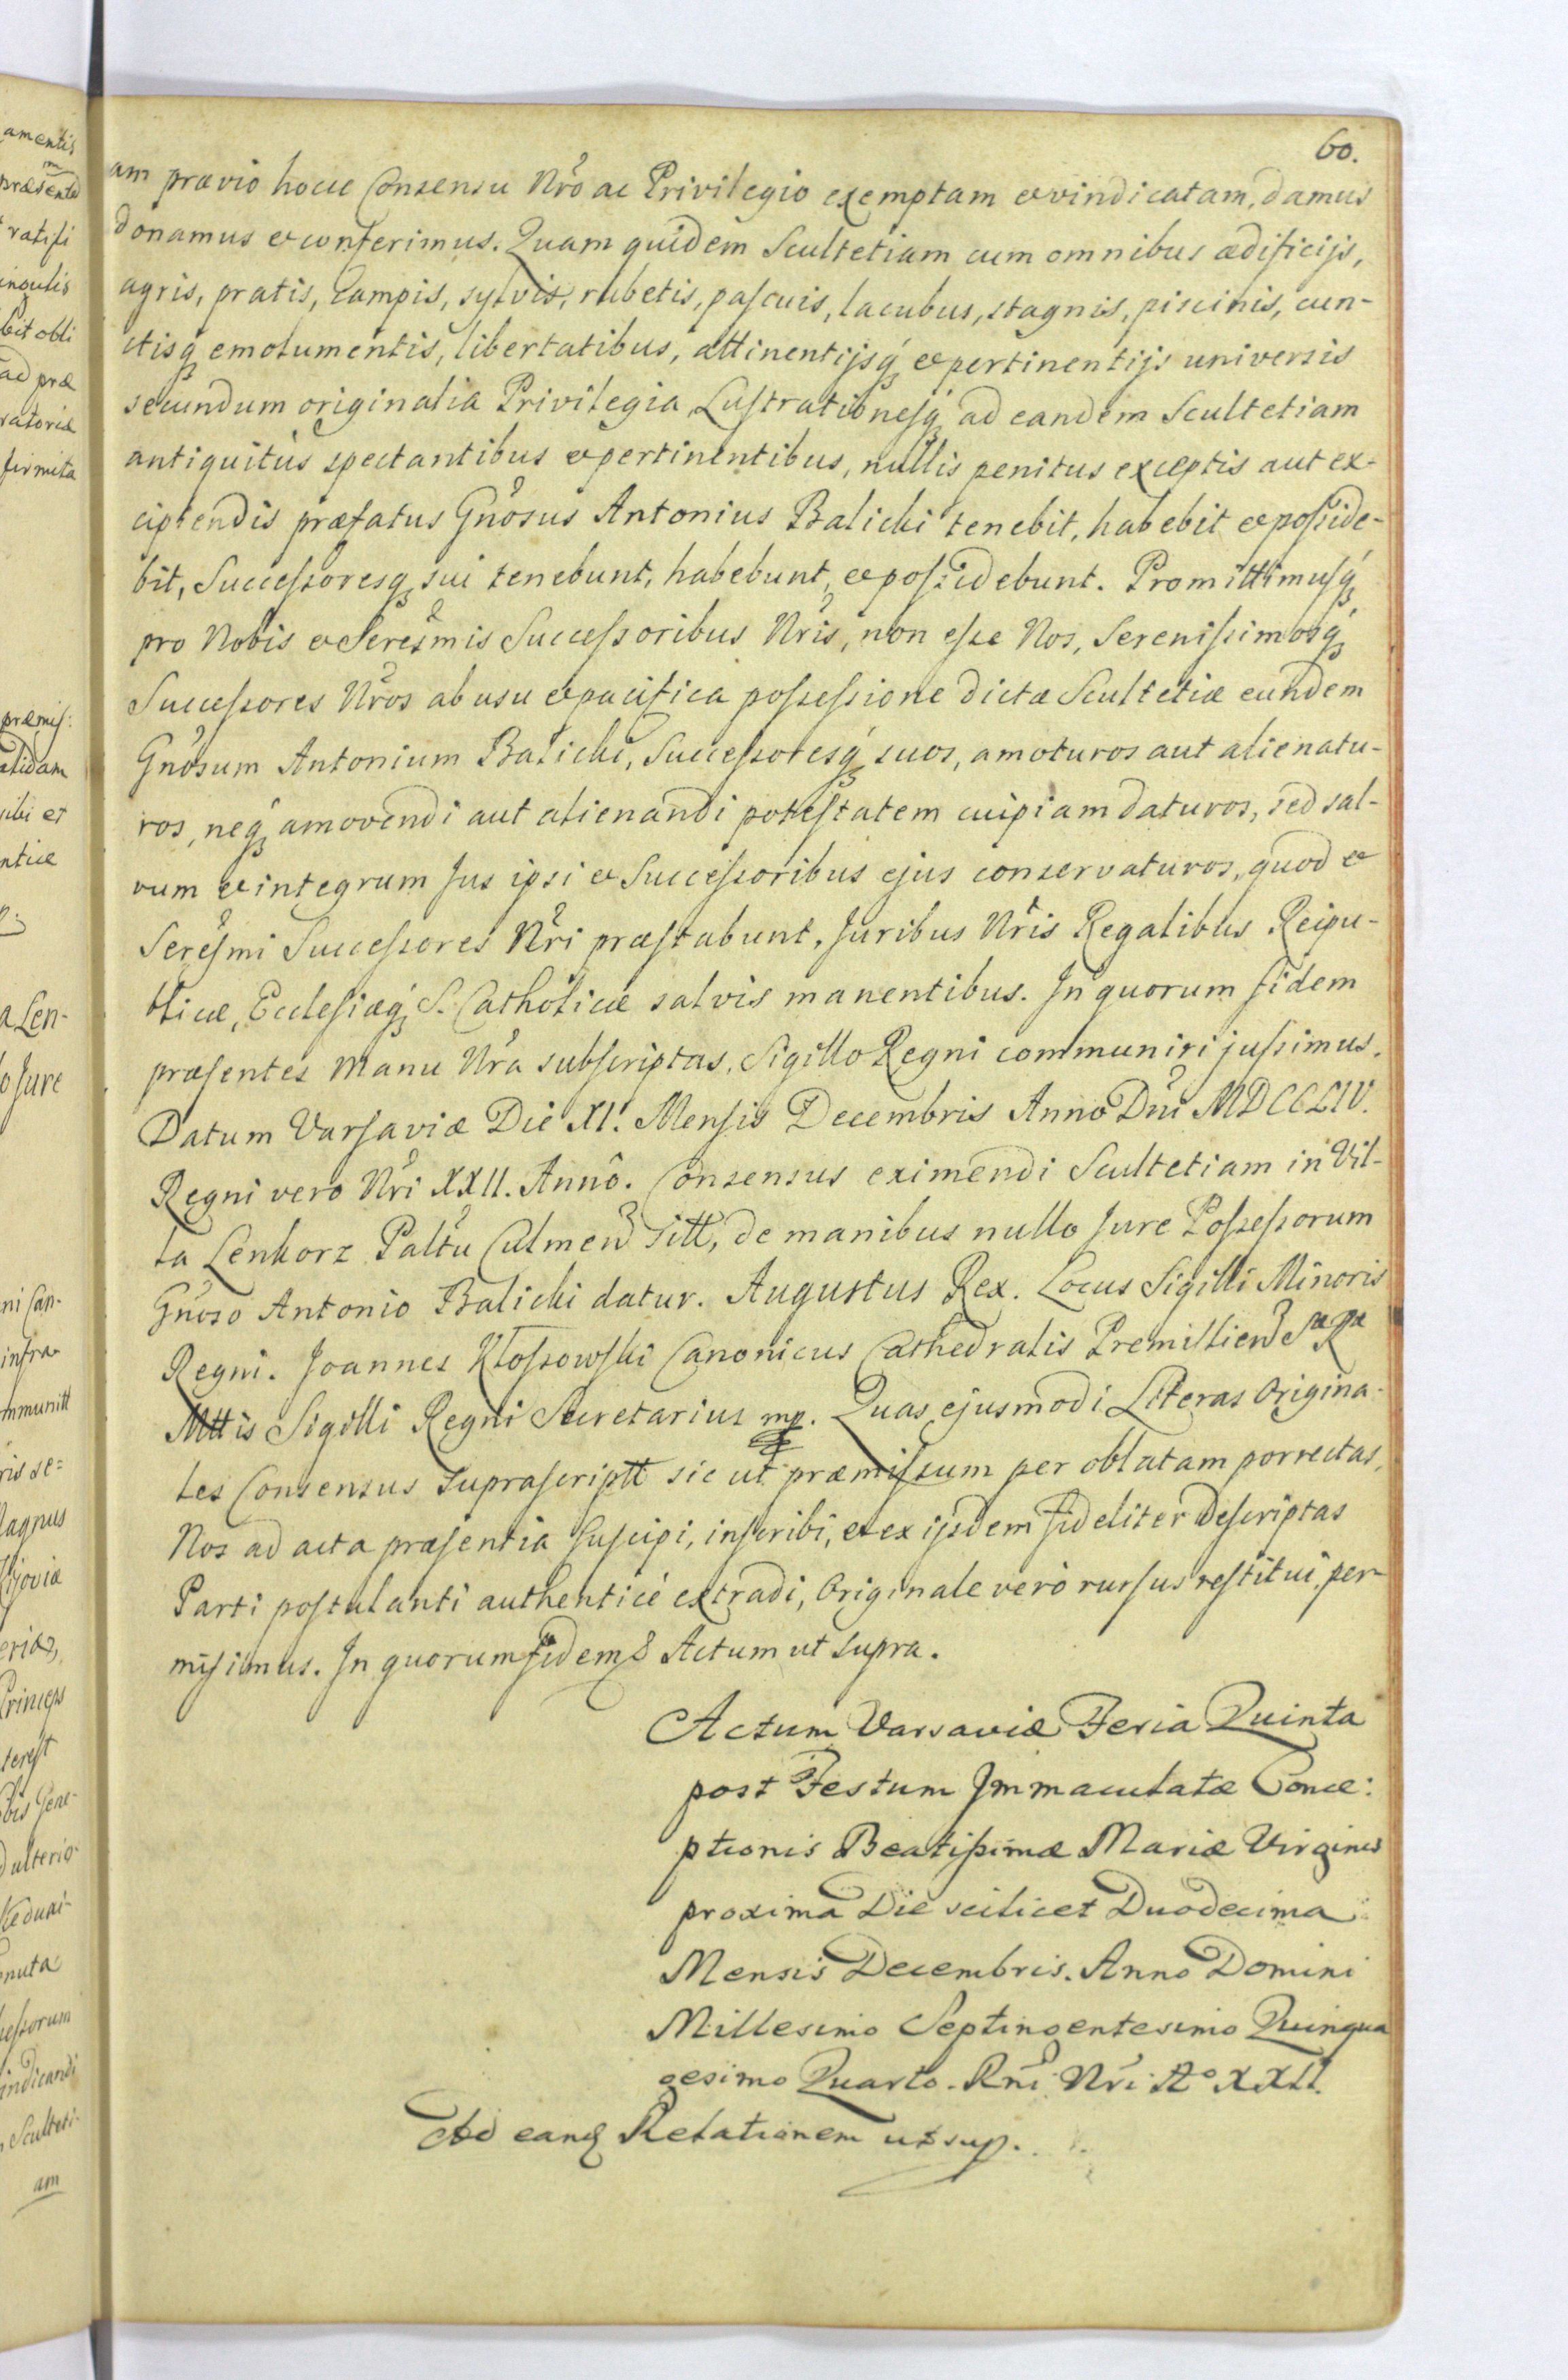 60.
am prævio hocce Consensu Nrõ ac Privilegio exemptam et vindicatam, damus
donamus et conferimus. Quam quidem Scultetiam cum omnibus ædificijs,
agris, pratis, Campis, sylvis, rubetis, pascuis, lacubus, stagnis, piscinis, cun-
ctisq́ emolumentis, libertatibus, attinentijsq́ et pertinentijs universis
secundum originalia Privilegia, Lustrationesq́ ad eandem Scultetiam
antiquitùs spectantibus et pertinentibus, nullis penitus exceptis aut ex-
cipiendis præfatus Gnõsus Antonius Balicki tenebit, habebit et posside-
bit, Successoresq́ sui tenebunt, habebunt, et possidebunt. Promittimusq́
pro Nobis et Serẽsmis Successoribus Nrĩs, non esse Nos, Serenissimosq́
Successores Nrõs ab usu et pacifica possessione dictæ Scultetiæ eundem
Gnõsum Antonium Balicki, Successoresq́ suos, amoturos aut alienatu-
ros, neq́ amovendi aut alienandi potestatem cuipiam daturos, sed sal-
vum et integrum Jus ipsi et Successoribus ejus conservaturos, quod et
Serẽsmi Successores Nrĩ præstabunt. Juribus Nrĩs Regalibus Reipu-
blicæ, Ecclesiæq́ S. Catholicæ salvis manentibus. In quorum fidem
præsentes Manu Nrã subscriptas, Sigillo Regni communiri jussimus.
Datum Varsaviæ Die XI. Mensis Decembris Anno Dnĩ MDCCLIV.
Regni vero Nrĩ XXII. Annô. Consensus eximendi Scultetiam in Vil-
la Lenkorz Paltũ Culmen Sitt, de manibus nullo Jure Possessorum
Gnõso Antonio Balicki datur. Augustus Rex. Locus Sigilli Minoris
Regni. Joannes Kłossowski Canonicus Cathedralis Premislien Sæ Ræ
Mttis Sigilli Regni Secretarius mp. Quas ejusmodi Literas Origina-
les Consensus suprascriptt sic ut præmissum per oblatam porrectas,
Nos ad acta præsentia suscipi, inscribi, et ex ijsdem fideliter Descriptas
Parti postulanti authenticè extradi, Originale verò rursus restitui per-
misimus. In quorum fidem & Actum ut supra.
Actum Varsaviæ Feria Quinta
post Festum Immaculatæ Conce:
ptionis Beatissimæ Mariæ Virginis
proxima Die scilicet Duodecima
Mensis Decembris. Anno Domini
Millesimo Septingentesimo Quinqua
gesimo Quarto. Rnĩ Nrĩ Ao XXII.
Ad eanđ Relationem ut sup.